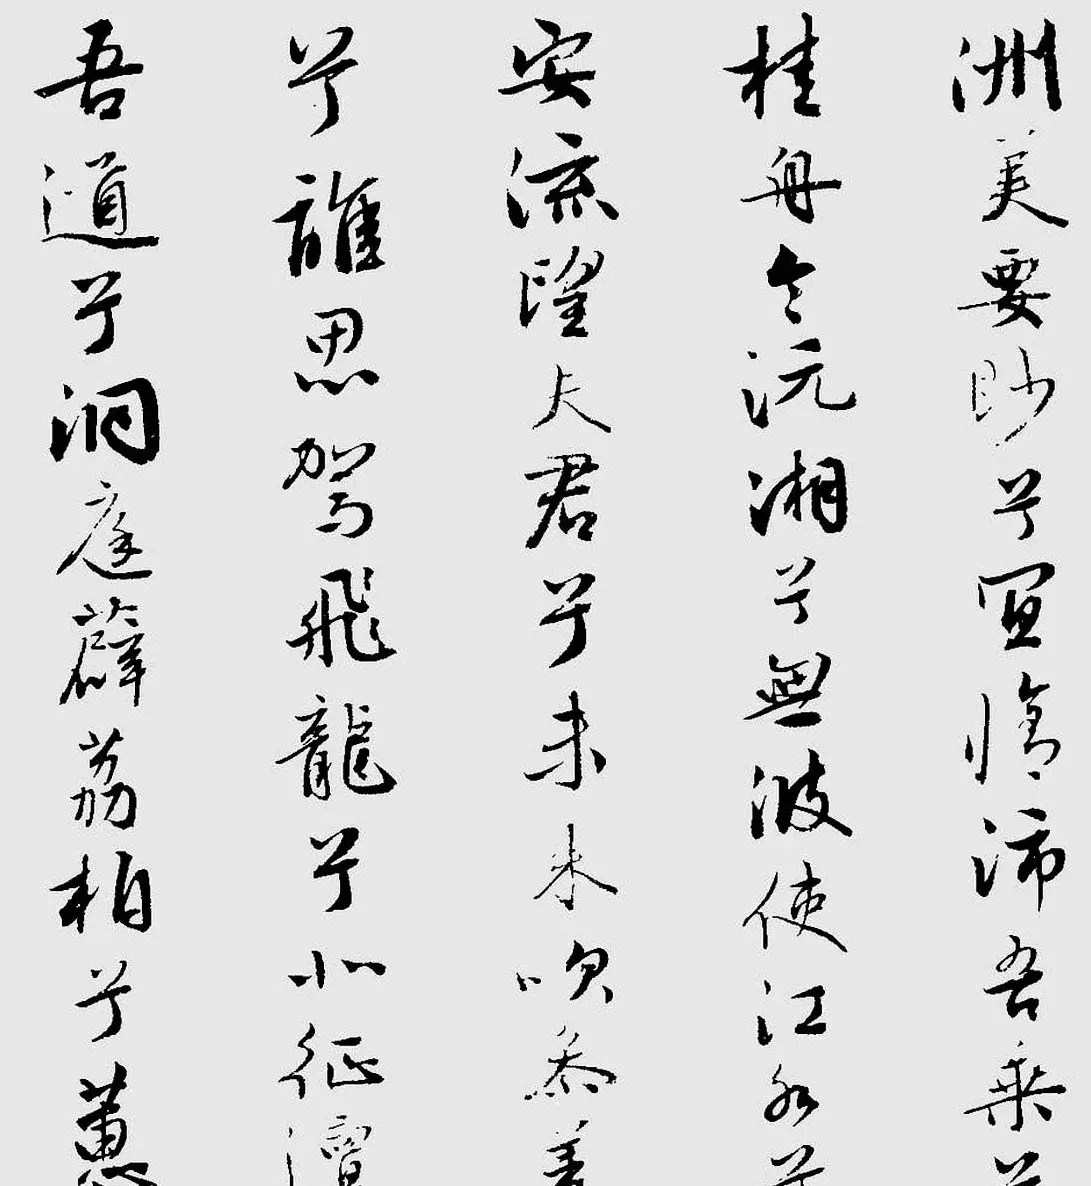 洲美要眇兮宜脩沛吾乘兮
桂舟令沅湘兮無波使江水兮
安流望夫君兮未来吹參差
兮誰思駕飛龍兮北征邅
吾道兮洞庭薜荔柏兮蕙